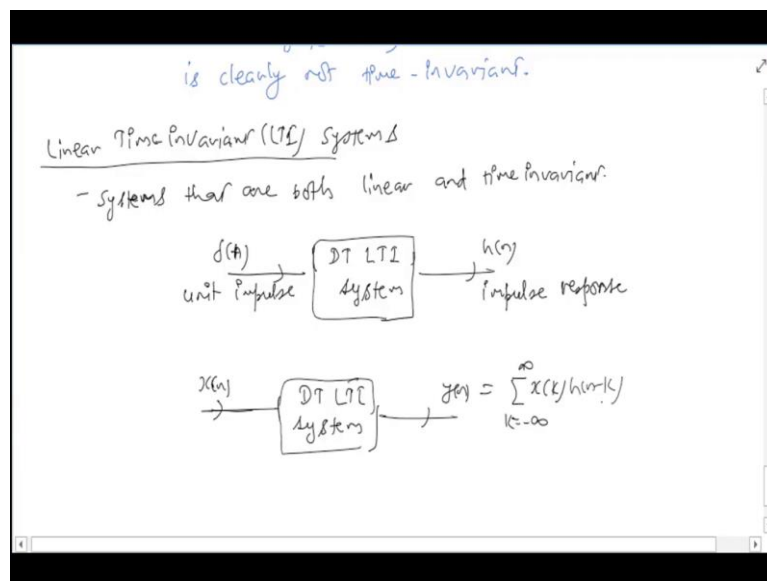 is clearly not time-invariant.
Linear Time Invariant (LTI) Systems
- Systems that are both linear and time invariant.
δ(n) DT LTI h(n)
unit impulse system impulse response
x(n) DT LTI y(n) = ∑ x(k) h(n-k)
system k=-∞ ∞